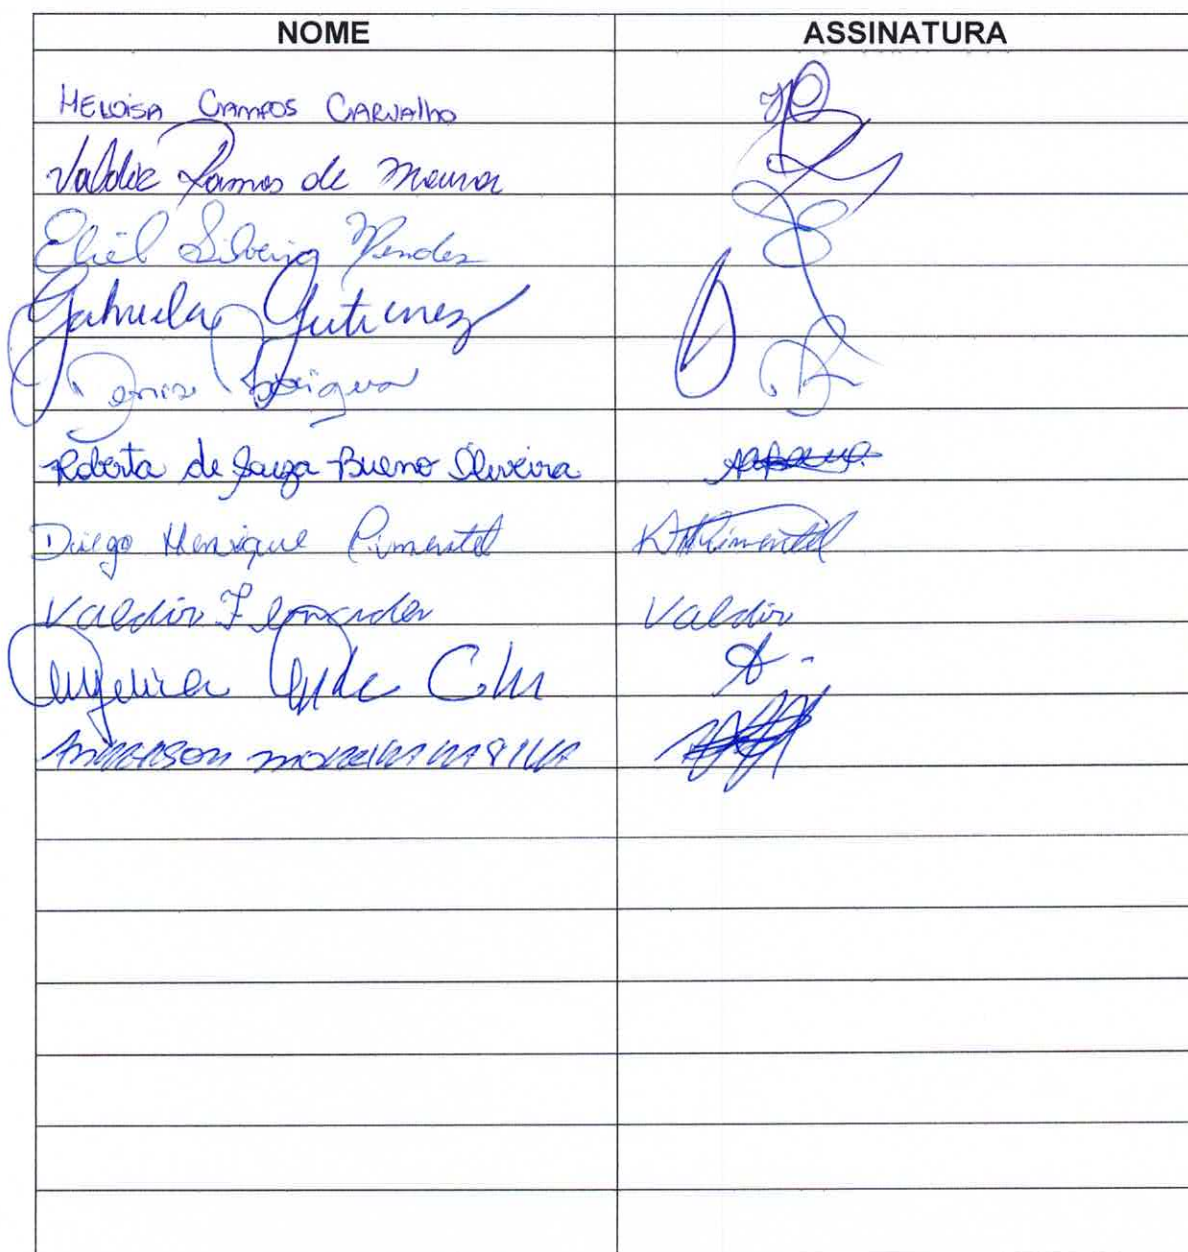 NOME ASSINATURA
HELOISA CAMPOS CARVALHO
Valdir Ramos de Moura
Eliel Silveira Mendes
Gabriela Gutierrez
Roberta de Souza Bueno Oliveira
Diego Henrique Pimentel DHPimentel
Valdir Fernandes Valdir
ANDERSON MOREIRA DA SILVA